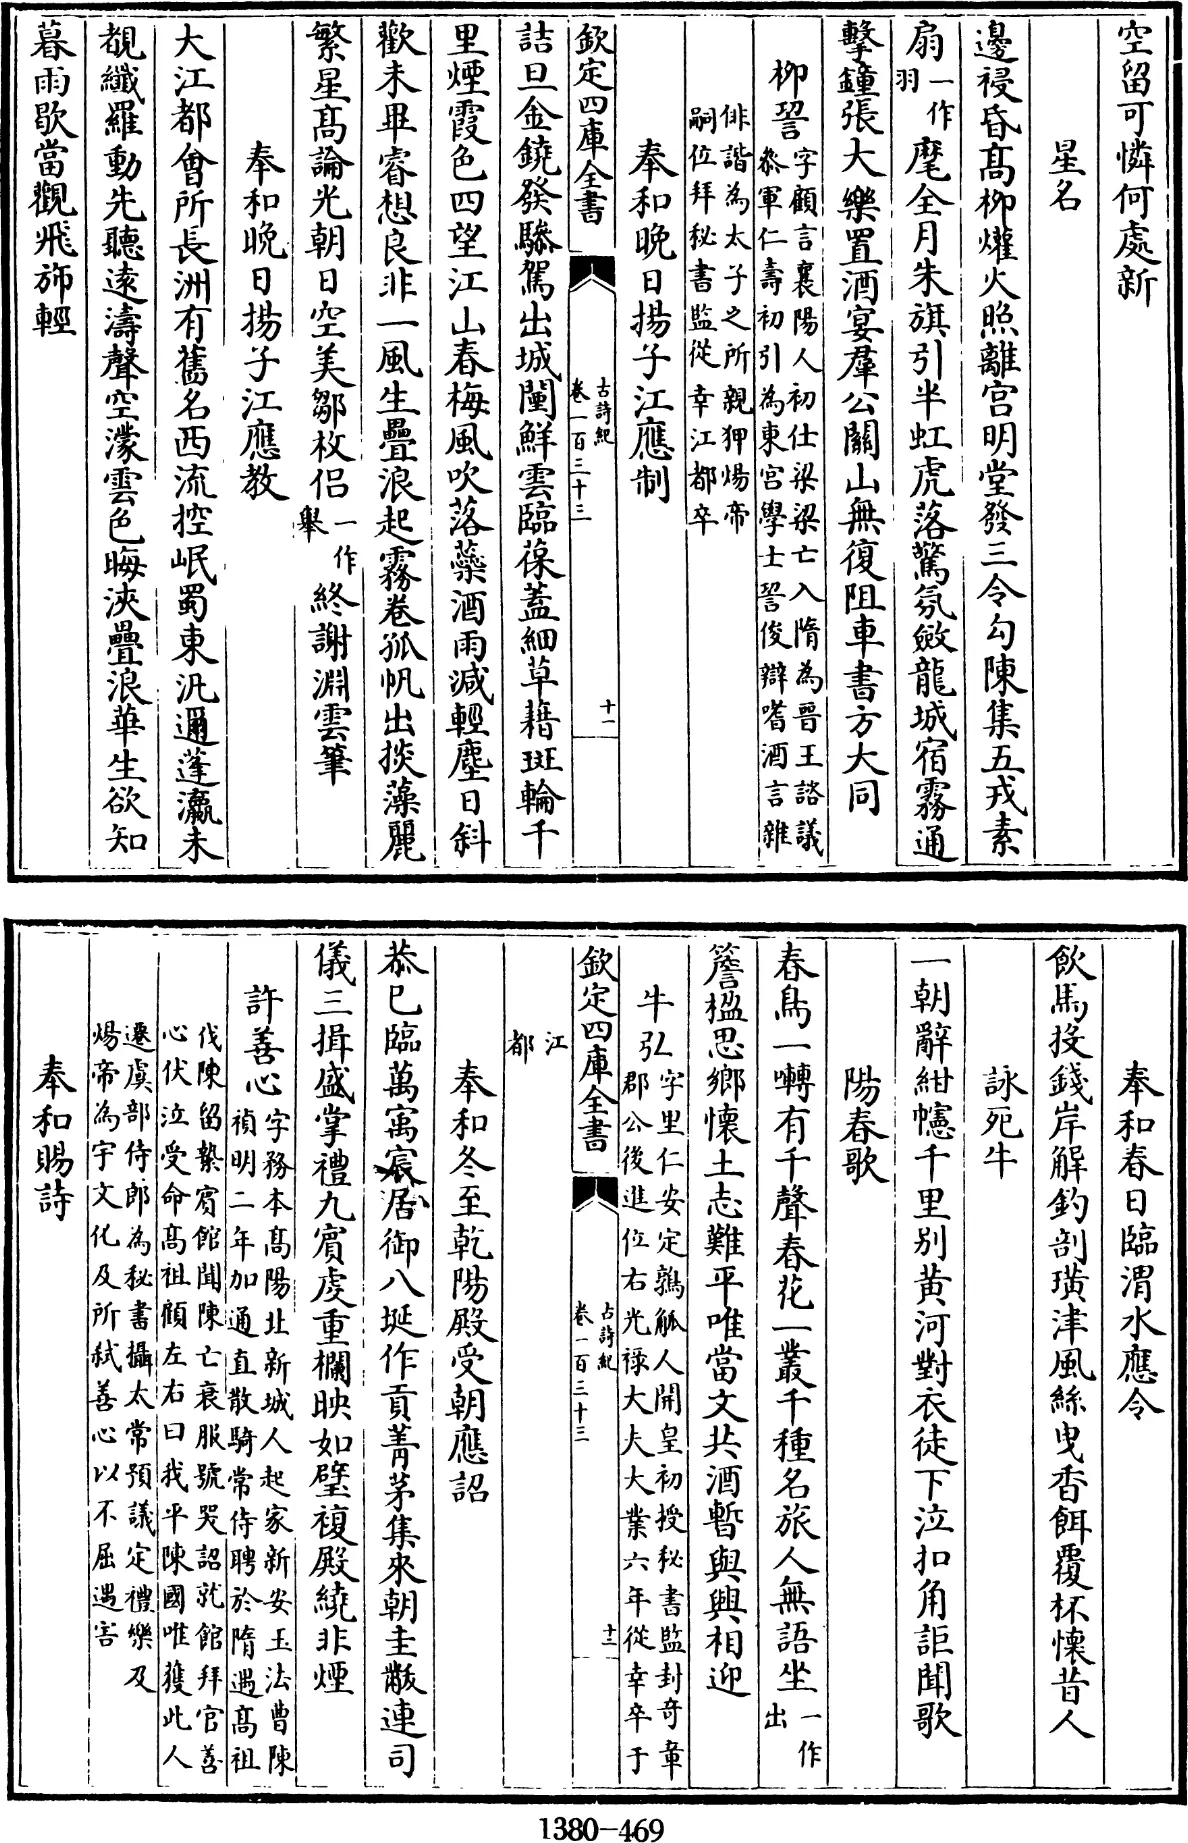 空留可憐何處新
星名
邊祲昏髙柳爟火照離宫明堂發三令勾陳集五戎素
扇一作羽麾全月朱旗引半虹虎落驚氛斂龍城宿霧通
擊鐘張大樂置酒宴羣公關山無復阻車書方大同
柳䛒字顧言襄陽人初仕梁梁亡入隋為晉王諮議
叅軍仁壽初引為東宫學士䛒俊辯嗜酒言雜
俳諧為太子之所親狎煬帝
嗣位拜秘書監從幸江都卒
奉和晚日揚子江應制
欽定四庫全書
古詩紀
卷一百三十三
十一
詰旦金鐃發驂駕出城闉鮮雲臨葆蓋細草藉斑輪千
里煙霞色四望江山春梅風吹落蘂酒雨減輕塵日斜
歡未畢睿想良非一風生疊浪起霧卷孤帆出掞藻麗
繁星髙論光朝日空美鄒枚侣一作舉終謝淵雲筆
奉和晚日揚子江應教
大江都會所長洲有舊名西流控岷蜀東汎邇蓬瀛未
覩纖羅動先聽逺濤聲空濛雲色晦浹疊浪華生欲知
暮雨歇當觀飛斾輕
奉和春日臨渭水應令
飲馬投錢岸解釣剖璜津風絲曳香餌覆杯懷昔人
詠死牛
一朝辭紺幰千里别黄河對衣徒下泣扣角詎聞歌
陽春歌
春鳥一囀有千聲春花一叢千種名旅人無語坐一作出
簷楹思鄉懷土志難平唯當文共酒暫與興相迎
牛弘字里仁安定鶉觚人開皇初授秘書監封奇章
郡公後進位右光祿大夫大業六年從幸卒于
欽定四庫全書
古詩紀
卷一百三十三
十二
江
都
奉和冬至乾陽殿受朝應詔
恭已臨萬寓宸居御八埏作貢菁茅集來朝圭黻連司
儀三揖盛掌禮九賓虔重欄映如璧複殿繞非煙
許善心字務本髙陽北新城人起家新安王法曹陳
禎明二年加通直散騎常侍聘於隋遇髙祖
伐陳留縶賓館聞陳亡衰服號哭詔就館拜官善
心伏泣受命髙祖顧左右曰我平陳國唯獲此人
遷虞部侍郎為秘書攝太常預議定禮樂及
煬帝為宇文化及所弑善心以不屈遇害
奉和賜詩
1380-469